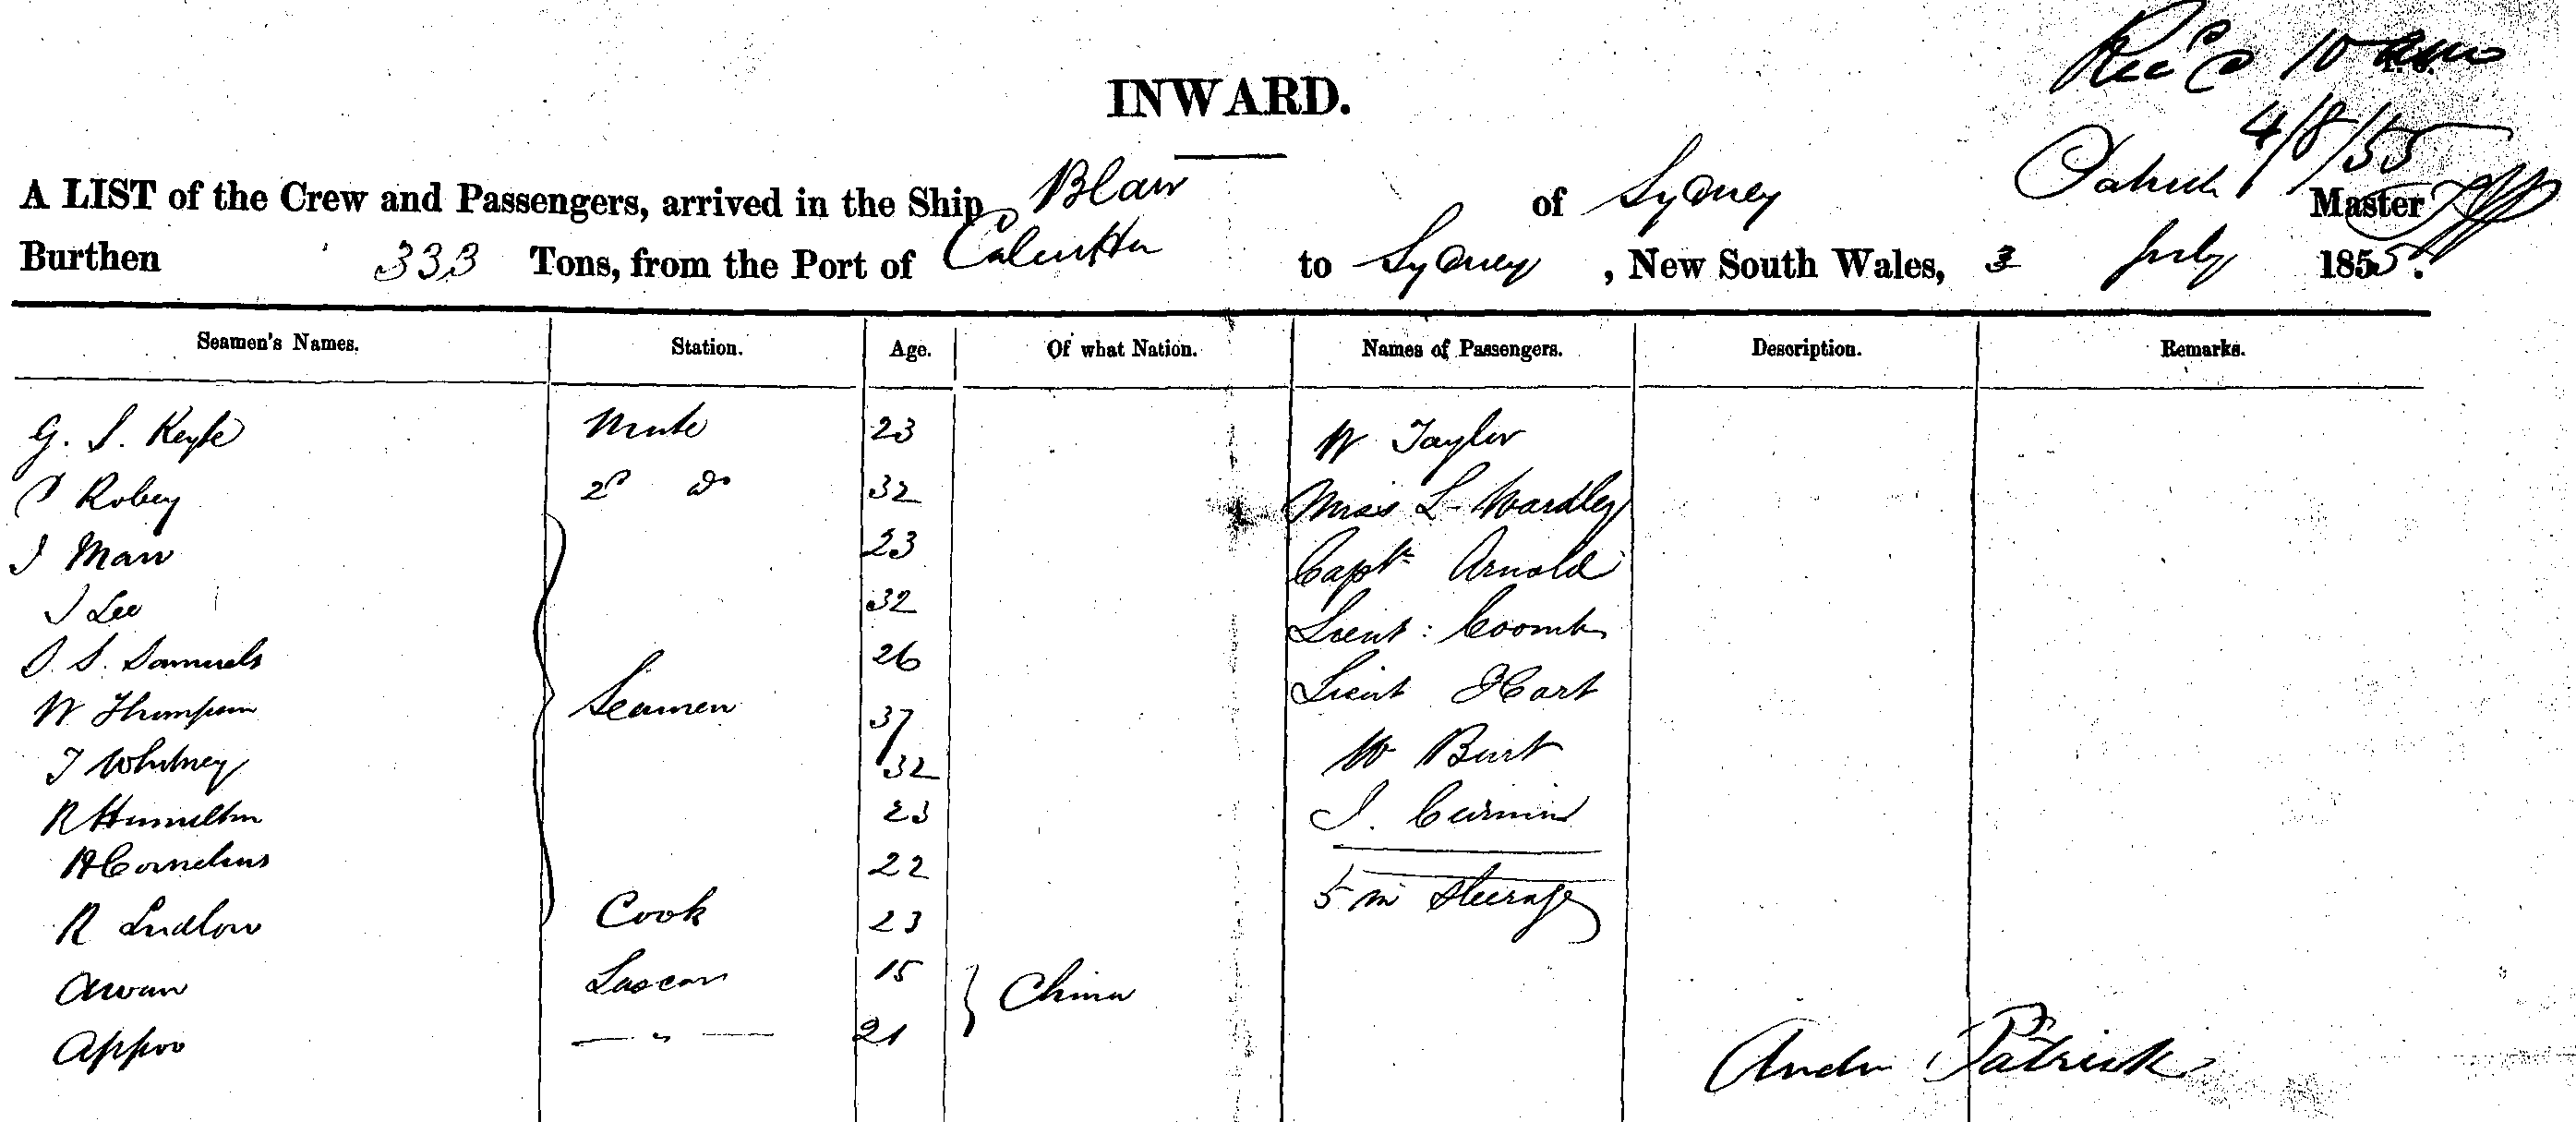 Rec'd 10 am
4/8/55
INWARD.
A LIST of the Crew and Passengers, arrived in the Ship, Blair of Sydney Patrick Master
Burthen 333 Tons, from the Port of Calcutta to Sydney, New South Wales, 3 July 1855.
Seamen's Names. Station. Age. Of what Nation. Names of Passengers. Description. Remarks.
G. S. Mate 23 W Taylor
Robey 2d do 32 Miss L Wardley
J Marr 23 Captn Arnold
J Lee 32 Lieut: Coombs
S. Samuels 26 Lieut Hart
W Thompson Seamen 37 W Burt
T Whitney 32 J.
R Hamilton 23
H Cornelius 22 5 in steerage
R Ludlow Cook 23
Awan Lascar 15 China
Appoo — " — 21
Andw Patrick